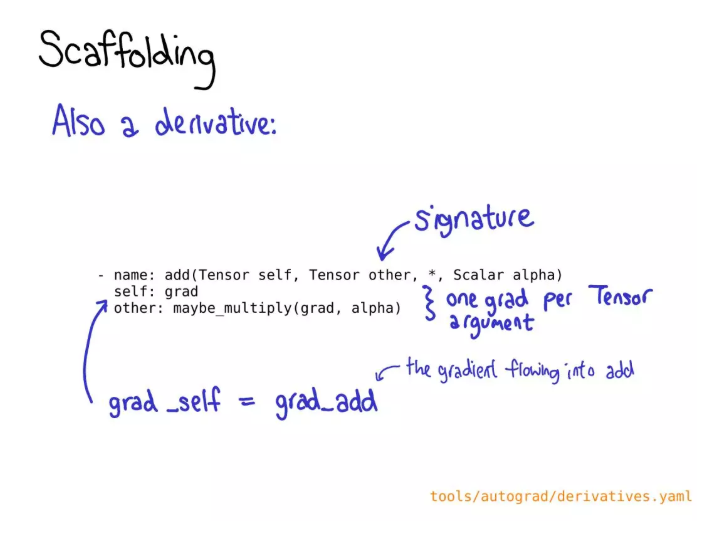 Scaffolding
Also a derivative:
signature
- name: add(Tensor self, Tensor other, *, Scalar alpha)
self: grad
other: maybe_multiply(grad, alpha)
one grad per Tensor
argument
the gradient flowing into add
grad_self = grad_add
tools/autograd/derivatives.yaml